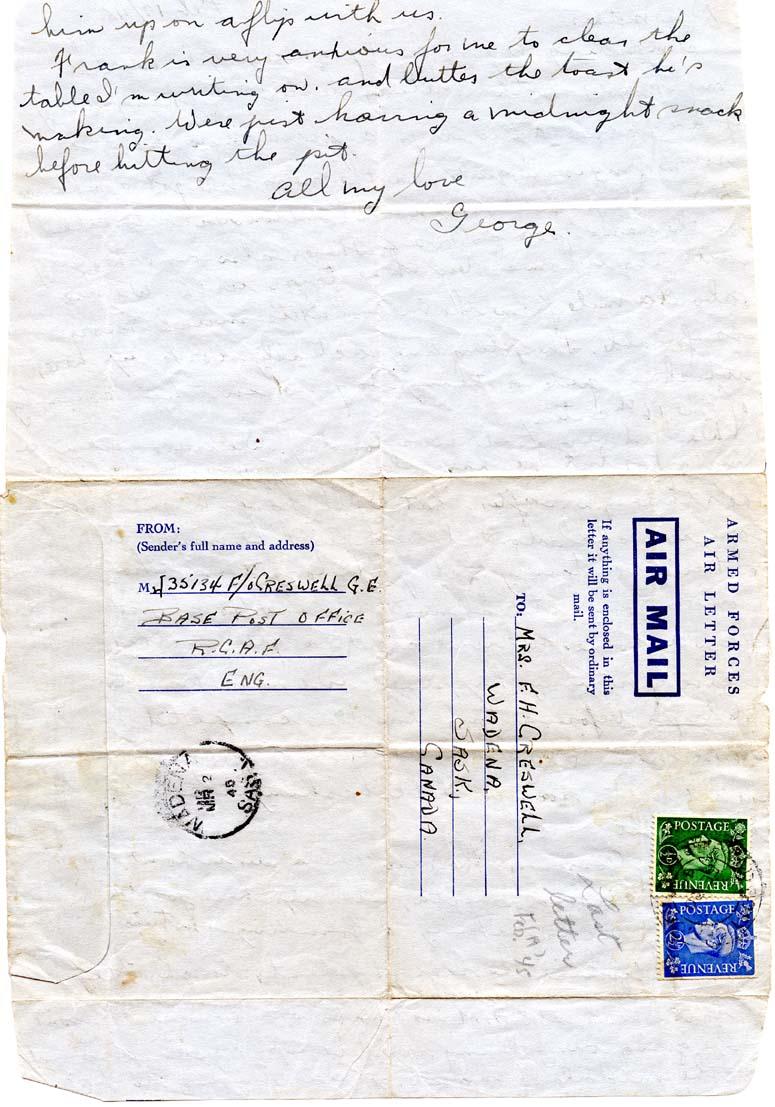 him up on a flip with us.
Frank is very anxious for me to clear the
table I'm writing on. and butter the toast he's
making. We're just having a midnight snack
before hitting the pit.
All my love
George.
FROM:
(Sender's full name and address)
J35134 F/O CRESWELL G.E.
BASE POST OFFICE
R.C.A.F.
ENG.
WADENA
SASK
MR 2
45
ARMED FORCES
AIR LETTER
AIR MAIL
If anything is enclosed in this
letter it will be sent by ordinary
mail.
TO:
MRS. F. H. CRESWELL,
WADENA,
SASK,
CANADA.
Last
letter
Feb. '45
POSTAGE
½D
REVENUE
POSTAGE
2½D
REVENUE